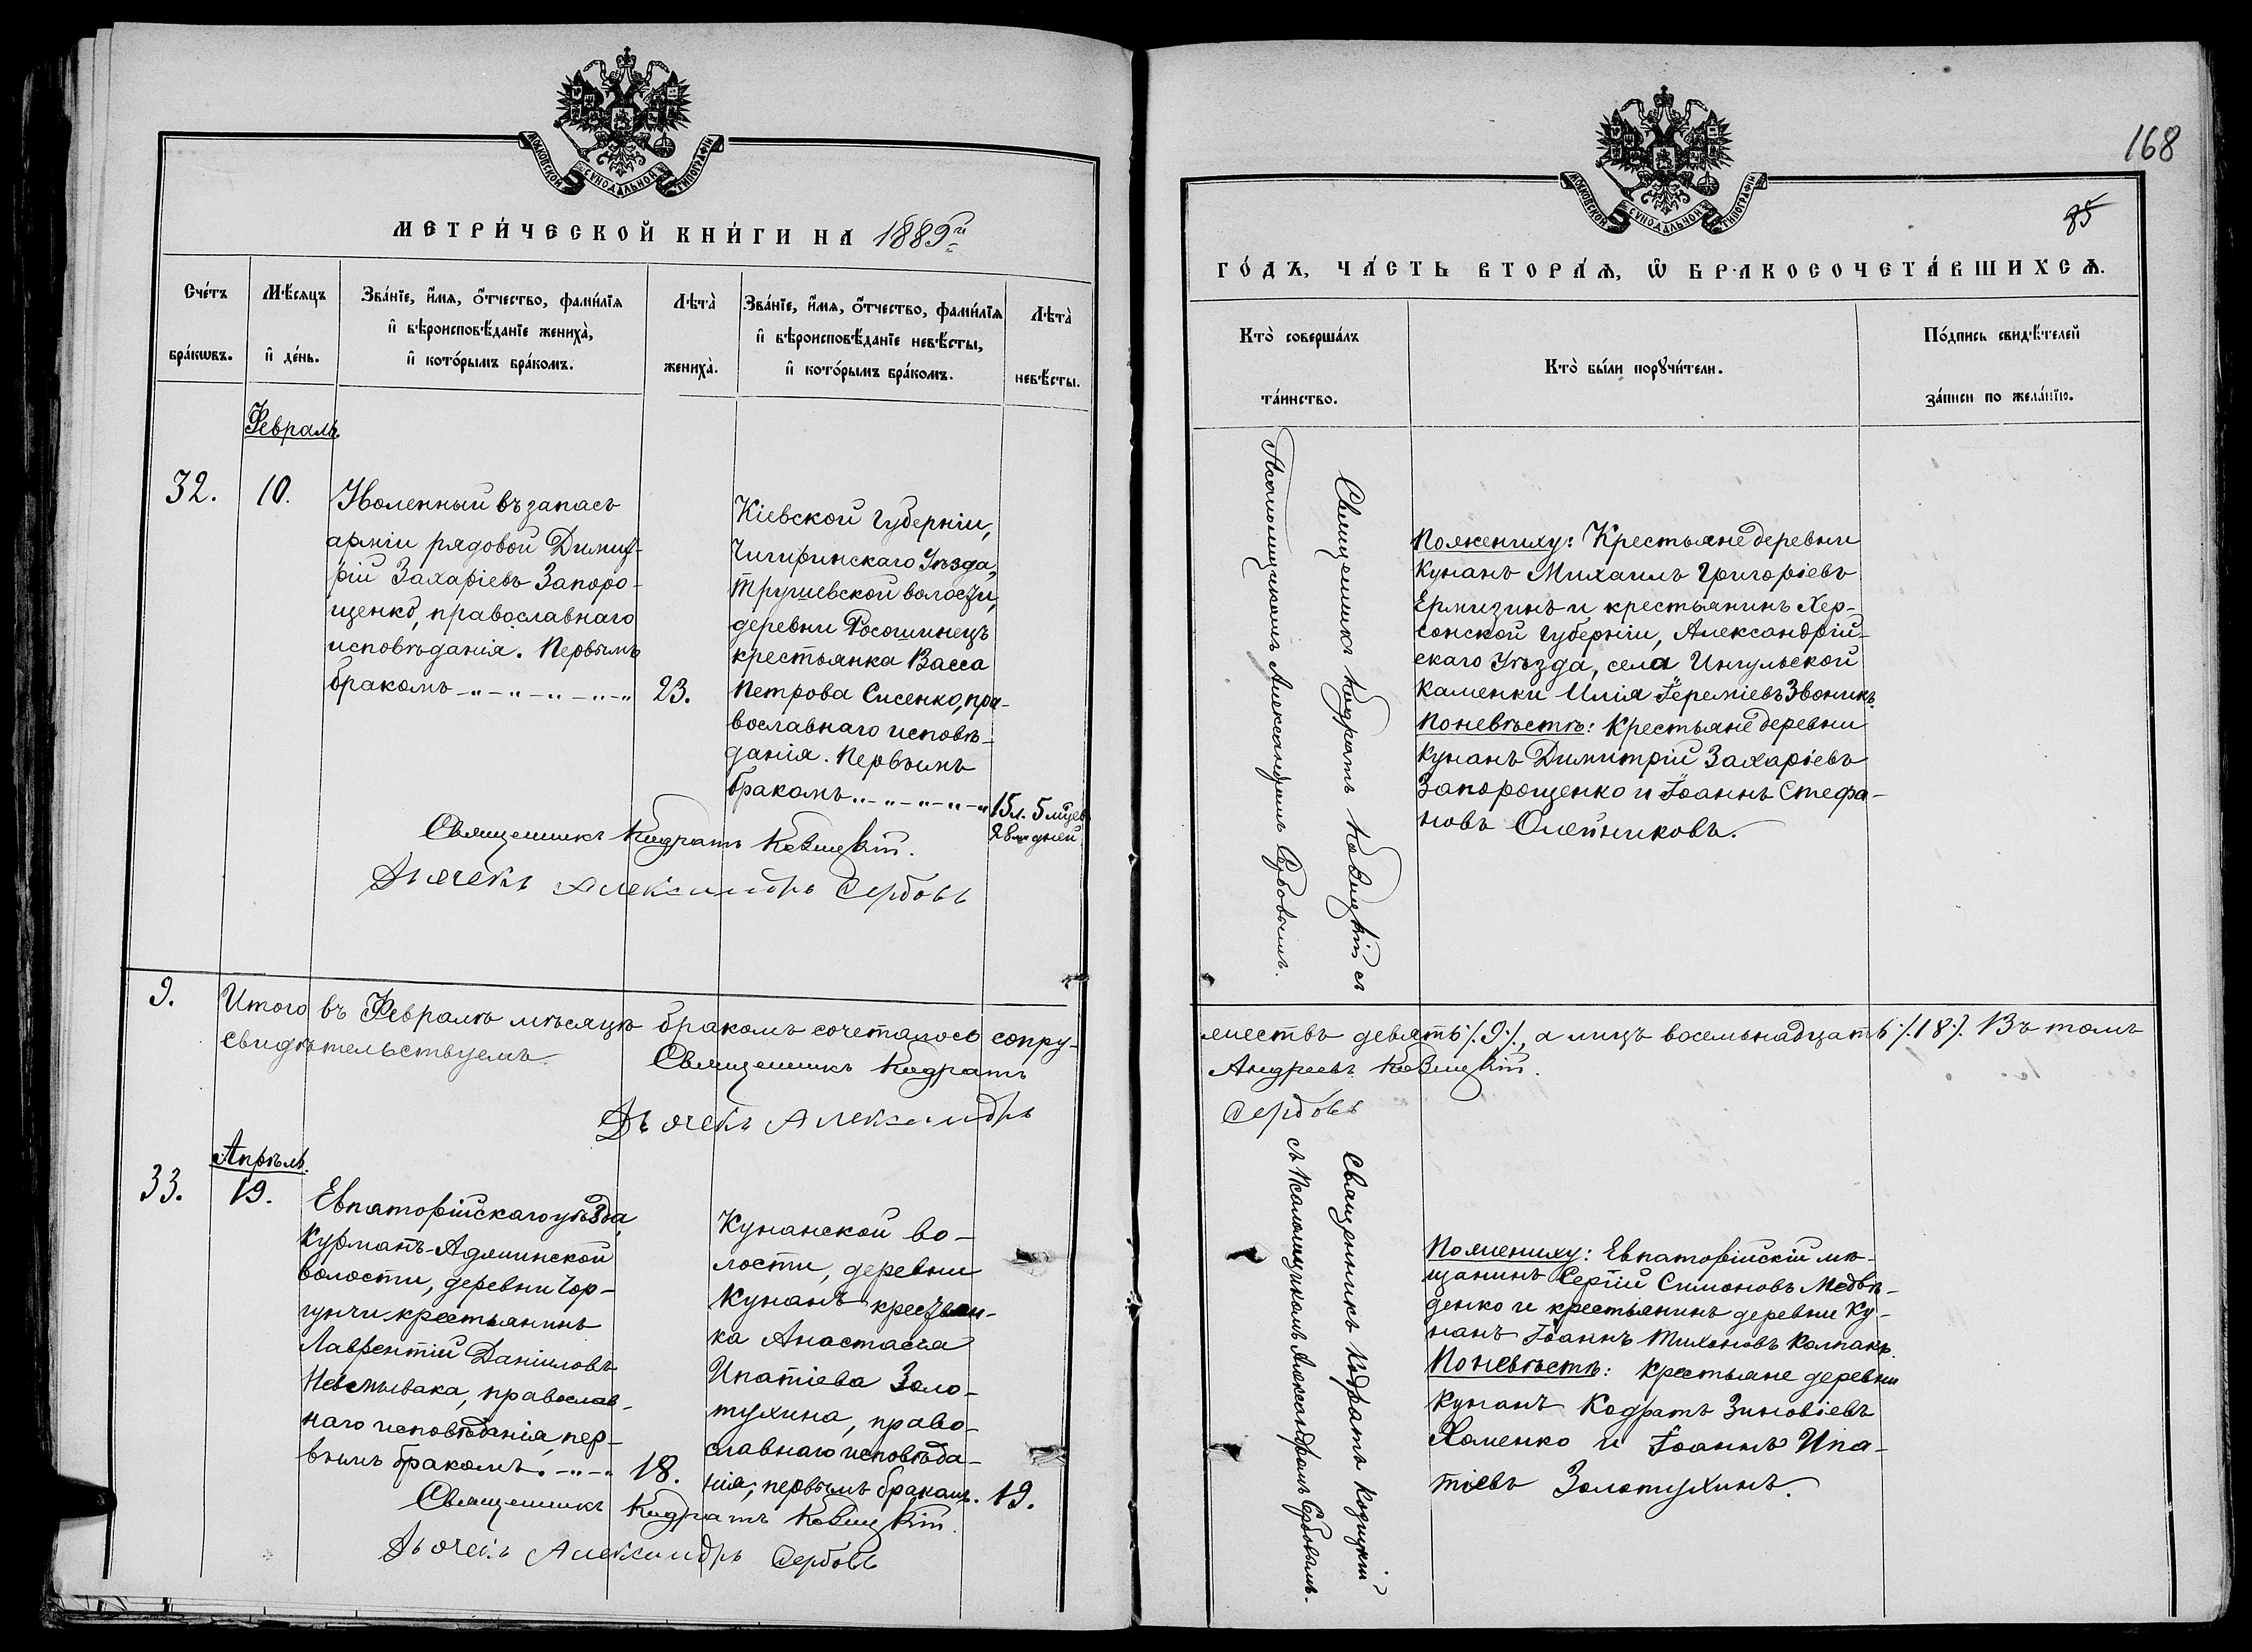 МОСКОВСКОЙ СѴНОДАЛЬНОЙ ТИПОГРАФІИ
МЕТРИ́ЧЕСКОЙ КНИ́ГИ НА 1889й
Сче́тъ бра́кѡвъ.
Мѣ́сяцъ и҆ де́нь.
Зва́нїе, и҆́мя, ѻ҆́тчество, фами́лїя
и҆ вѣроисповѣ́данїе жениха̀,
и҆ кото́рымъ бра́комъ.
Лѣта̀ жениха̀.
Зва́нїе, и҆́мя, ѻ҆́тчество, фами́лїя
и҆ вѣроисповѣ́данїе невѣ́сты,
и҆ кото́рымъ бра́комъ.
Лѣта̀ невѣ́сты.
Февраль.
32.
10.
Уволенный въ запасъ
арміи рядовой Димит-
рій Захаріевъ Запоро-
щенко, православнаго
исповѣданія. Первымъ
бракомъ -"-"-"-"-"
23.
Кіевской губерніи,
Чигиринскаго уѣзда,
Трушевской волости,
деревни Росошинецъ
крестьянка Васса
Петрова Сисенко, пра-
вославнаго исповѣ-
данія. Первымъ
бракомъ "-"-"-"-"
15 л. 5 мцевъ
28 дней
Священникъ Кодратъ Козицкій.
Дьячекъ Александръ Сербовъ
9.
Итого въ Февралѣ мѣсяцѣ бракомъ сочеталось сопру-
свидѣтельствуемъ.
Священникъ Кодратъ
Дьячекъ Александръ
Апрѣль.
33.
19.
Евпаторійскаго уѣзда,
Курманъ-Аджинской
волости, деревни Чор-
гунчи крестьянинъ
Лаврентій Даніиловъ
православ-
наго исповѣданія, пер-
вымъ бракомъ. -"-"
18.
Кунанской во-
лости, деревни
Кунанъ крестьян-
ка Анастасія
Ипатіева Золо-
тухина, право-
славнаго исповѣда-
нія, первымъ бракомъ.
19.
Священникъ Кодратъ Козицкій.
Дьячекъ Александръ Сербовъ
168
85
МОСКОВСКОЙ СѴНОДАЛЬНОЙ ТИПОГРАФІИ
ГО́ДЪ, ЧА́СТЬ ВТОРА́Ѧ, Ѡ҆ БРАКОСОЧЕТА́ВШИХСѦ.
Кто̀ соверша́лъ
та́инство.
Кто̀ бы́ли порꙋчи́тели.
По́дпись свидѣ́телей
за́писи по жела́нїю.
Священникъ Кодратъ Козицкій съ
Псаломщикомъ Александромъ Сербовымъ.
По жениху: Крестьяне деревни
Кунанъ Михаилъ Григоріевъ
Ермизинъ и крестьянинъ Хер-
сонской губерніи, Александрій-
скаго уѣзда, села Ингульской
Каменки Илія Іереміевъ Звоникъ.
По невѣстѣ: Крестьяне деревни
Кунанъ Димитрій Захаріевъ
Запорощенко и Іоаннъ Стефа-
новъ Олейниковъ.
жествъ девять ./.9./., а лицъ восемьнадцать ./.18./. Въ томъ
Андреевъ Козицкій.
Сербовъ
Священникъ Кодратъ Козицкій
съ Псаломщикомъ Александромъ Сербовымъ.
По жениху: Евпаторійскій мѣ-
щанинъ Сергій Симоновъ Медвѣ-
денко и крестьянинъ деревни Ку-
нанъ Іоаннъ Тихоновъ Колпакъ.
По невѣстѣ: Крестьяне деревни
Кунанъ Кодратъ Зиновіевъ
Хоменко и Іоаннъ Ипа-
тіевъ Золотухинъ.